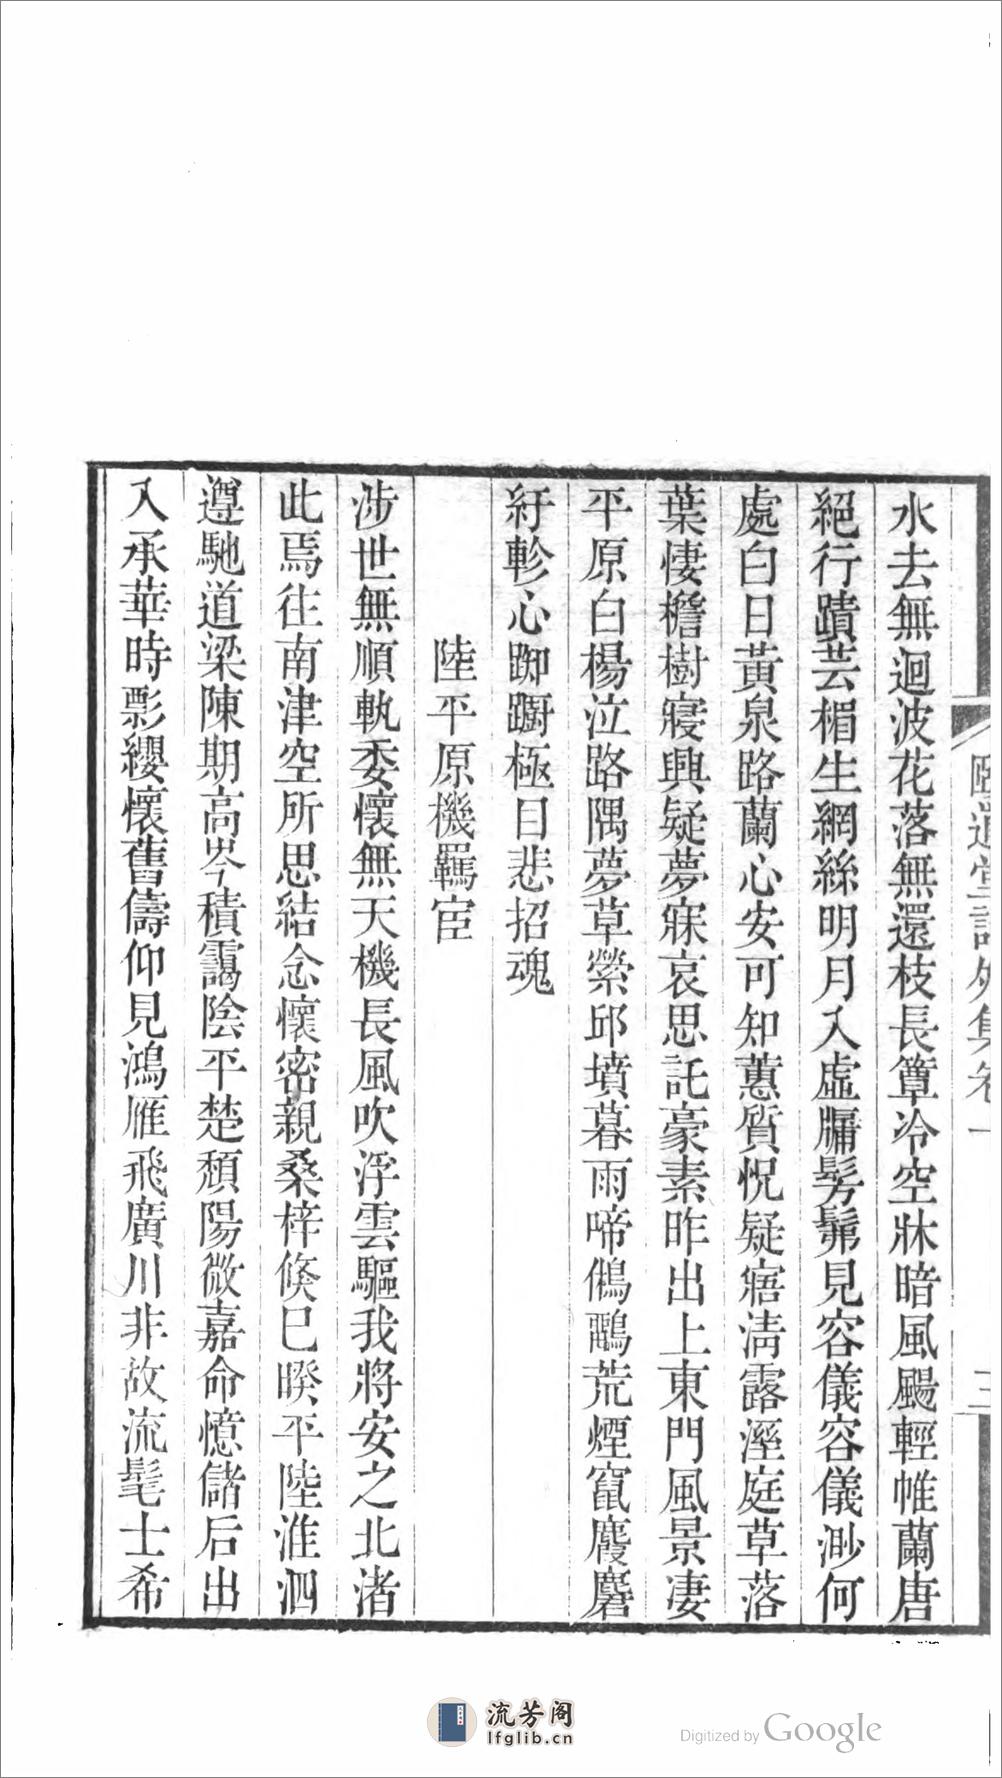 頤道堂詩外集卷一
三
水去無迴波花落無還枝長簟冷空牀暗風颺輕帷蘭唐
絕行蹟芸楣生網絲明月入虛牖髣髴見容儀容儀渺何
處白日黃泉路蘭心安可知蕙質怳疑寤淸露溼庭草落
葉悽檐樹寢興疑夢寐哀思託豪素昨出上東門風景凄
平原白楊泣路隅夢草縈邱墳暮雨啼鵂鶹荒煙竄麏麕
紆軫心踟躕極目悲招魂
陸平原機羈宦
涉世無順軌委懷無天機長風吹浮雲驅我將安之北渚
此焉往南津空所思結念懷密親桑梓倏已暌平陸淮泗
遵馳道梁陳期高岑積靄陰平楚頹陽微嘉命憶儲后出
入承華時影纓懷舊儔仰見鴻雁飛廣川非故流髦士希
流芳阁
lfglib.cn
Digitized by Google